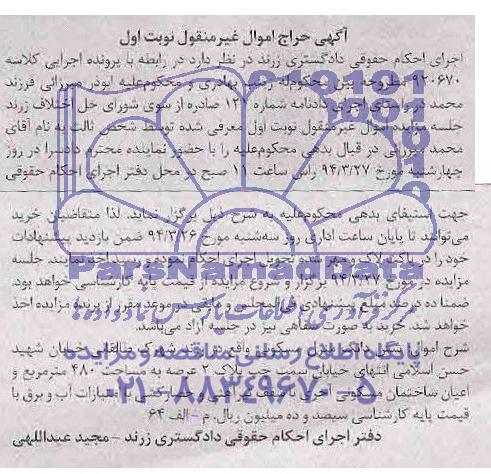 آگهی حراج اموال غیرمنقول نوبت اول
اجرای احکام حقوقی دادگستری زرند در نظر دارد در رابطه با پرونده اجرایی کلاسه
۹۲۰۶۷۰ مطروحه بین محکوم‌له بهادری و محکوم‌علیه ابوذر میرزائی فرزند
محمد در راستای اجرای دادنامه شماره ۱۲ صادره از سوی شورای حل اختلاف زرند
جلسه مزایده اموال غیرمنقول نوبت اول معرفی شده توسط شخص ثالث به نام آقای
محمد میرزائی در قبال بدهی محکوم‌علیه را با حضور نماینده محترم دادسرا در روز
چهارشنبه مورخ ۹۴/۳/۲۷ راس ساعت ۱۱ صبح در محل دفتر اجرای احکام حقوقی
جهت استیفای بدهی محکوم‌علیه به شرح ذیل برگزار نماید. لذا متقاضیان خرید
می‌توانند تا پایان ساعت اداری روز سه‌شنبه مورخ ۹۴/۳/۲۶ ضمن بازدید پیشنهادات
خود را در پاکت لاک و مهر شده تحویل اجرای احکام نموده و رسید اخذ نمایند. جلسه
مزایده در مورخ ۹۴/۳/۲۷ برگزار و شروع مزایده از قیمت پایه کارشناسی خواهد بود.
ضمنا ده درصد مبلغ پیشنهادی فی‌المجلس و مابقی در موعد مقرر از برنده مزایده اخذ
خواهد شد. خرید به صورت شفاهی نیز در جلسه آزاد می‌باشد.
شرح اموال: شش دانگ منزل مسکونی واقع در زرند شهرک طالقانی خیابان شهید
حسن اسلامی انتهای خیابان سمت چپ پلاک ۲ عرصه به مساحت ۴۸۰ مترمربع و
اعیان ساختمان مسکونی آجری با سقف امتیازات آب و برق با
قیمت پایه کارشناسی سیصد و ده میلیون ریال. م-الف ۶۴
دفتر اجرای احکام حقوقی دادگستری زرند - مجید عبداللهی
ParsNamadData
مرکز فرآوری اطلاعات پارس نماد داده‌ها
پایگاه اطلاع رسانی مناقصه و مزایده
۰۲۱-۸۸۳۴۹۶۷۰-۵